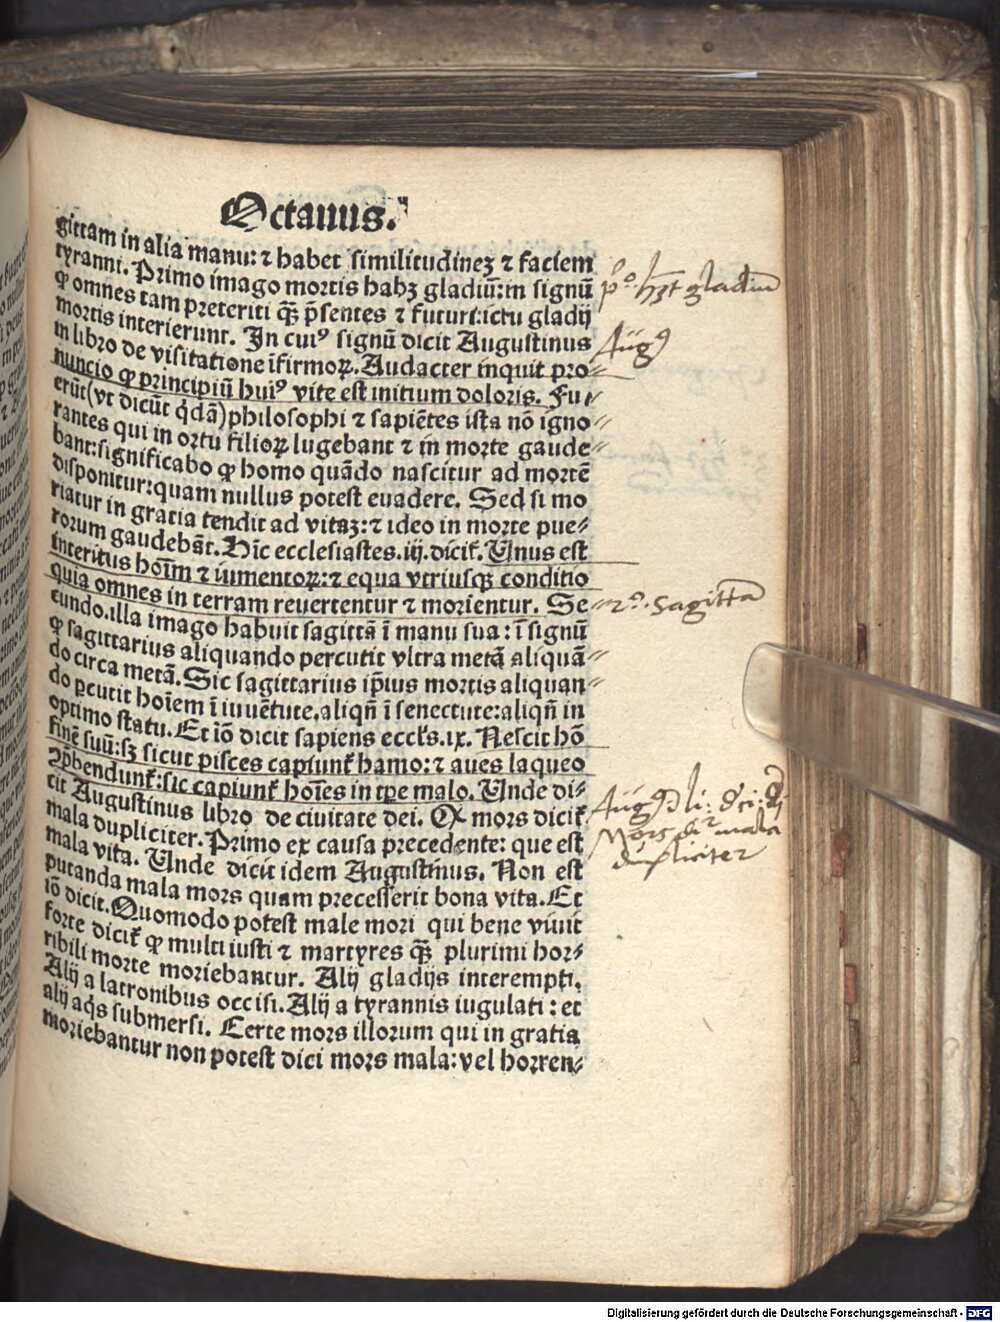 Octauus.
gittam in alia manu: ⁊ habet similitudineꝫ ⁊ faciem
tyranni. Primo imago mortis habꝫ gladiū: in signū
ꝙ omnes tam preteriti qꝫ̄ p̄sentes ⁊ futuri: ictu gladij
mortis interierunt. In cuiꝰ signū dicit Augustinus
in libro de visitatione īfirmoꝝ. Audacter inquit pro⸗
nuncio ꝙ principiū huiꝰ vite est initium doloris. Fu⸗
erūt (vt dicūt q̇dā) philosophi ⁊ sapiētes ista nō igno⸗
rantes qui in ortu filioꝝ lugebant ⁊ in morte gaude⸗
bant: significabo ꝙ homo quādo nascitur ad mortē
disponitur: quam nullus potest euadere. Sed si mo
riatur in gratia tendit ad vitaꝫ: ⁊ ideo in morte pue⸗
rorum gaudebāt. Hīc ecclesiastes. iij. dicit̄. Unus est
interitus hoīm ⁊ iumentoꝝ: ⁊ equa vtriusqꝫ conditio
quia omnes in terram reuertentur ⁊ morientur. Se⸗
cundo. illa imago habuit sagittā ī manu sua: ī signū
ꝙ sagittarius aliquando percutit vltra metā aliquā⸗
do circa metā. Sic sagittarius ip̄ius mortis aliquan⸗
do ꝑcutit hoīem ī iuuētute. aliqn̄ ī senectute: aliqn̄ in
optimo statu. Et iō dicit sapiens eccl̄s. ix. Nescit hō
finē suū: sꝫ sicut pisces capiunt̄ hamo: ⁊ aues laqueo
ꝯp̄hendunt̄: sic capiunt̄ hoīes in tꝑe malo. Unde di⸗
cit Augustinus libro de ciuitate dei. Qꝫ mors dicit̄
mala dupliciter. Primo ex causa precedente: que est
mala vita. Unde dicit idem Augustinus. Non est
putanda mala mors quam precesserit bona vita. Et
iō dicit. Quomodo potest male mori qui bene viuit
forte dicit̄ ꝙ multi iusti ⁊ martyres qꝫ̄ plurimi hor⸗
ribili morte moriebantur. Alij gladijs interempti,
Alij a latronibus occisi. Alij a tyrannis iugulati: et
alij aq̄s submersi. Certe mors illorum qui in gratia
moriebantur non potest dici mors mala: vel horren⸗
pº. hꝫt gladiū
Augꝰ
2º. Sagitta
Augꝰ li: de ci: d
Mors dr mala
dupliciter
Digitalisierung gefördert durch die Deutsche Forschungsgemeinschaft - DFG